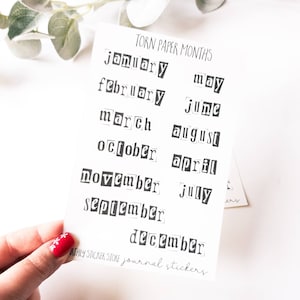 TORN PAPER MONTHS
january
may
february
june
march
august
october
april
november
july
september
december
journal stickers